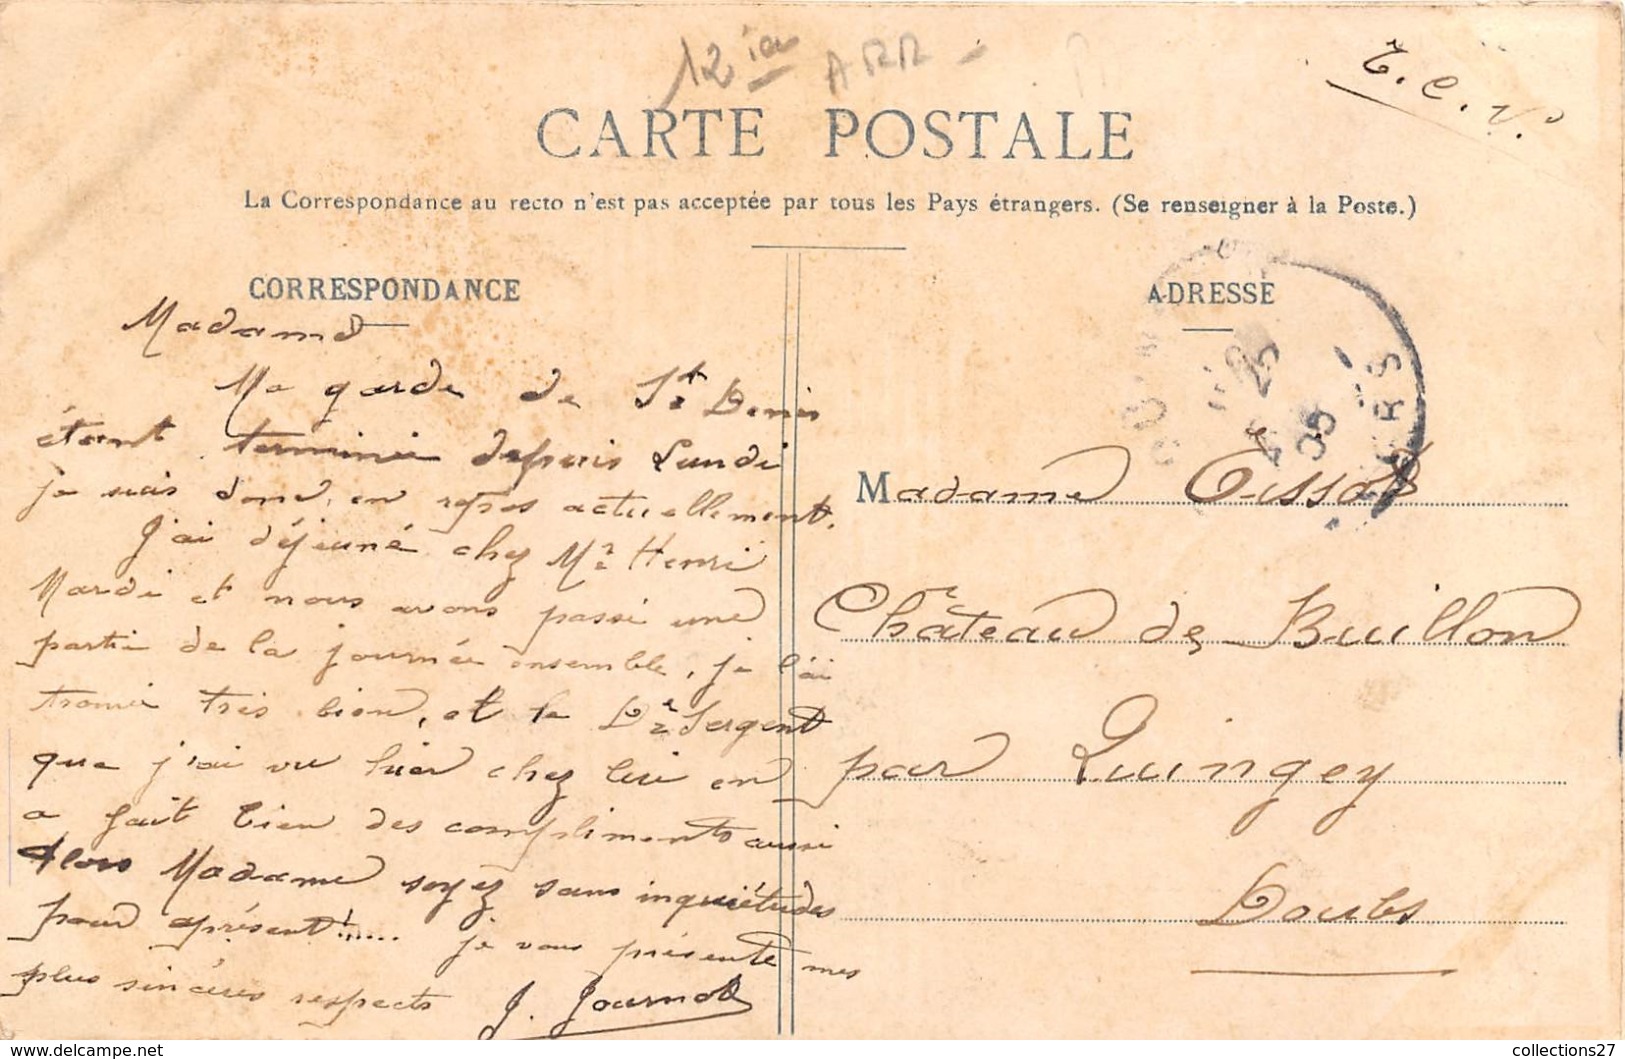 12 ie
ARR
T. C. V.
CARTE POSTALE
La Correspondance au recto n'est pas acceptée par tous les Pays étrangers. (Se renseigner à la Poste.)
CORRESPONDANCE
Madame
Ma garde de St Denis
étant terminée depuis Lundi
je suis donc, en repos actuellement.
J'ai déjeuné chez Mr Henri
Mardi et nous avons passé une
partie de la journée ensemble, je l'ai
trouvé très bien, et le Dr Sergent
que j'ai vu hier chez lui en
a fait bien des compliments aussi
Alors Madame soyez sans inquiétudes
pour àprésent!..... je vous présente mes
plus sincères respects J. Journot
ADRESSE
25
05
Madame Tissot
Château de Buillon
par Quingey
Doubs
collections27